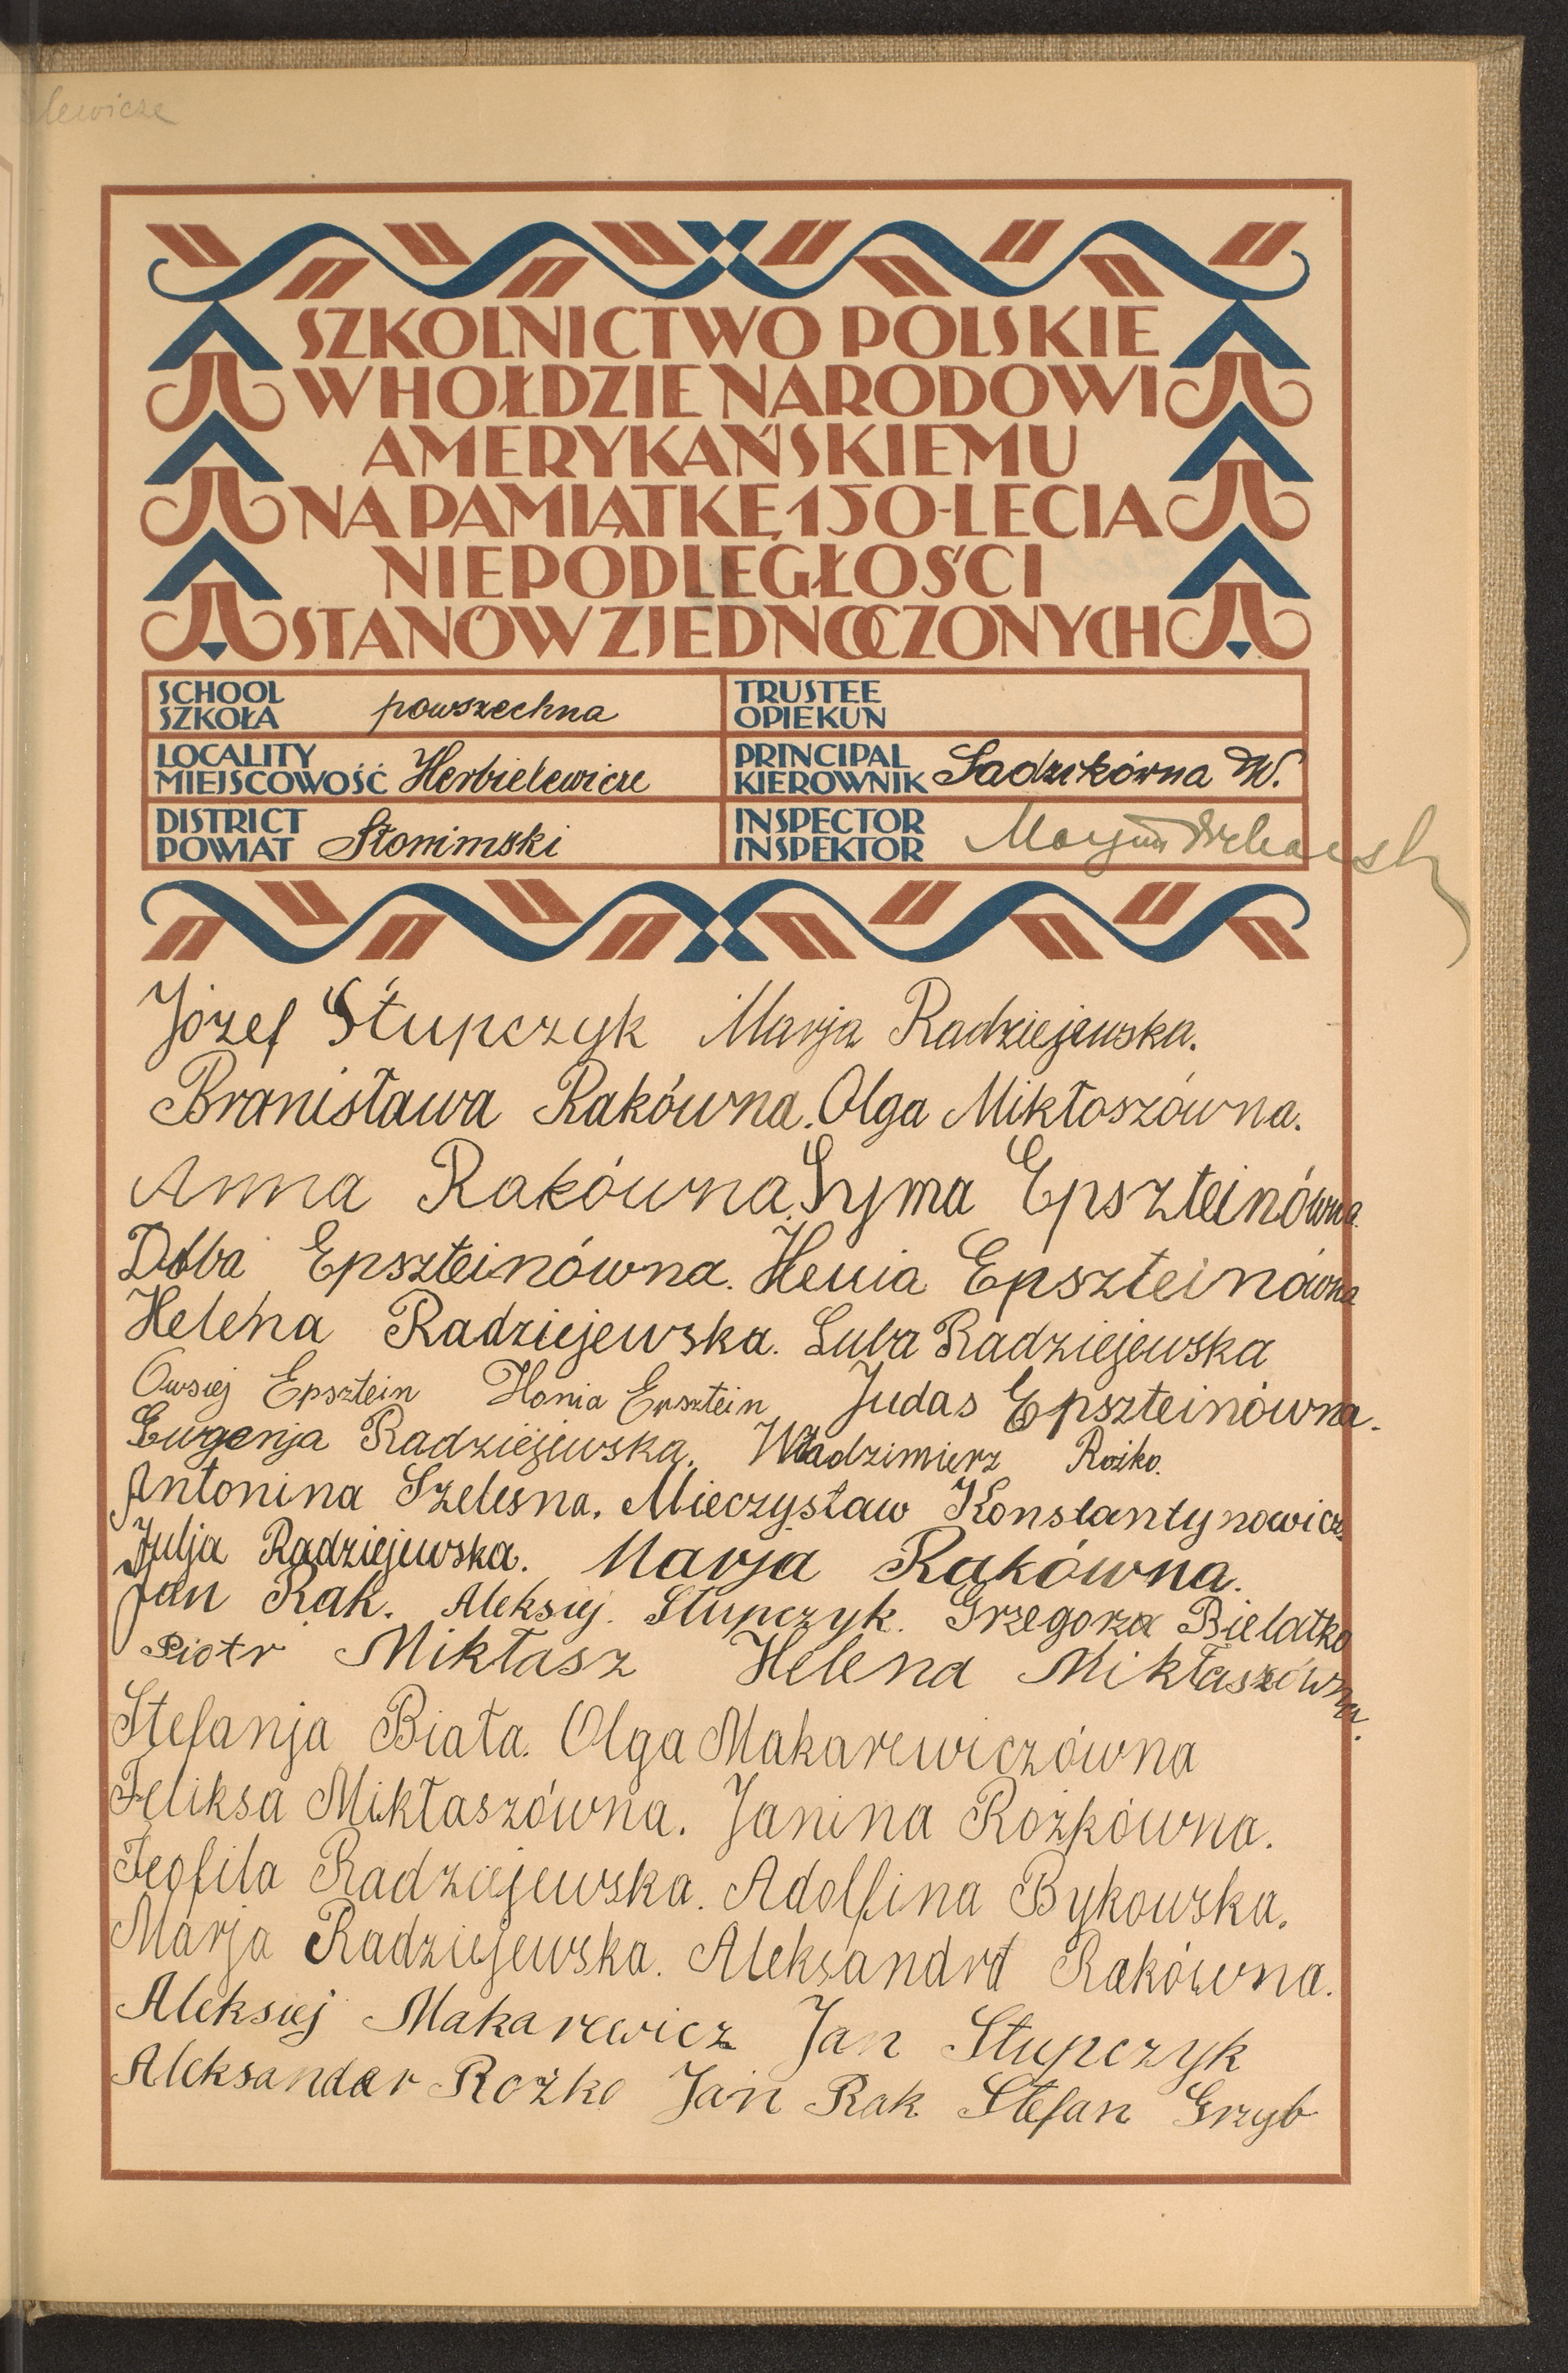 lewicze
SZKOLNICTWO POLSKIE
W HOŁDZIE NARODOWI
AMERYKAŃSKIEMU
NA PAMIĄTKĘ 150-LECIA
NIEPODLEGŁOŚCI
STANÓW ZJEDNOCZONYCH
SCHOOL
SZKOŁA powszechna
TRUSTEE
OPIEKUN
LOCALITY
MIEJSCOWOŚĆ Herbielewicze
PRINCIPAL
KIEROWNIK Sadzikówna W.
DISTRICT
POWIAT Słonimski
INSPECTOR
INSPEKTOR
Józef Słupczyk Marja Radziejewska.
Bronisława Rakówna. Olga Mikłoszówna.
Anna Rakówna. Syma Epszteinówna.
Doba Epszteinówna. Henia Epszteinówna
Helena Radziejewska. Luba Radziejewska
Owsiej Epsztein Honia Epsztein Judas Epszteinówna.
Eugenja Radziejewska. Władzimierz Rożko.
Antonina Szelesna. Mieczysław Konstantynowicz
Julja Radziejewska. Marja Rakówna.
Jan Rak. Aleksiej. Słupczyk. Grzegorza Bielatko
Piotr Mikłasz Helena Mikłaszówna.
Stefanja Biała. Olga Makarewiczówna
Feliksa Mikłaszówna. Janina Rożkówna.
Teofila Radziejewska. Adolfina Bykowska.
Marja Radziejewska. Aleksandra Rakówna.
Aleksiej Makarewicz Jan Słupczyk
Aleksander Rożko Jan Rak Stefan Grzyb